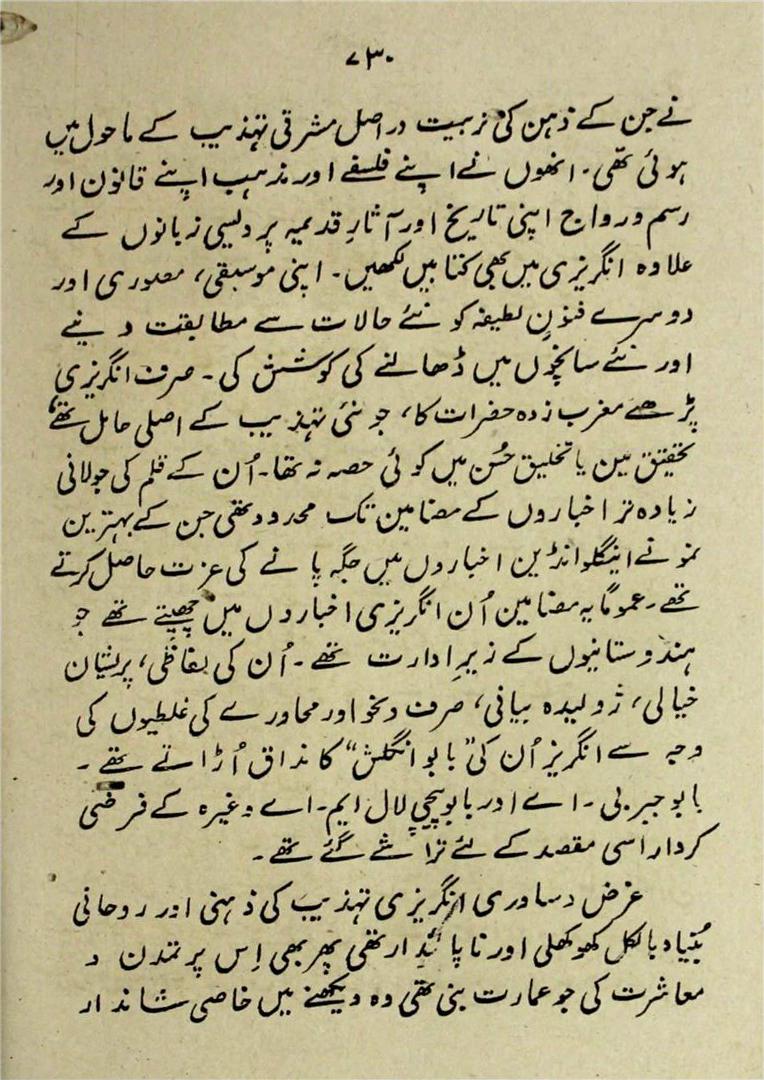 ۷۳۰
نے جن کے ذہن کی تربیت در اصل مشرقی تہذیب کے ماحول میں
ہوئی تھی۔ انھوں نے اپنے فلسفے اور مذہب اپنے قانون اور
رسم و رواج اپنی تاریخ اور آثارِ قدیمہ پر دیسی زبانوں کے
علاوہ انگریزی میں بھی کتابیں لکھیں۔ اپنی موسیقی، مصوری اور
دوسرے فنونِ لطیفہ کو نئے حالات سے مطابقت دینے
اور نئے سانچوں میں ڈھالنے کی کوشش کی۔ صرف انگریزی
پڑھے مغرب زدہ حضرات کا، جو نئی تہذیب کے اصلی حامل تھے،
تحقیق یا تخلیق حُسن میں کوئی حصہ نہ تھا۔ اُن کے قلم کی جولانی
زیادہ تر اخباروں کے مضامین تک محدود تھی جن کے بہترین
نمونے اینگلو انڈین اخباروں میں جگہ پانے کی عزت حاصل کرتے
تھے۔ عموماً یہ مضامین اُن انگریزی اخباروں میں چھپتے تھے جو
ہندوستانیوں کے زیرِ ادارت تھے۔ اُن کی لفاظی، پریشان
خیالی، ژولیدہ بیانی، صرف و نحو اور محاورے کی غلطیوں کی
وجہ سے انگریز اُن کی "بابو انگلش" کا مذاق اُڑاتے تھے۔
بابو جبر بی۔ اے اور بابو پیچی لال ایم۔ اے وغیرہ کے فرضی
کردار اسی مقصد کے لئے تراشے گئے تھے۔
غرض دساوری انگریزی تہذیب کی ذہنی اور روحانی
بُنیاد بالکل کھوکھلی اور ناپائدار تھی پھر بھی اِس پر تمدن و
معاشرت کی جو عمارت بنی تھی وہ دیکھنے میں خاصی شاندار